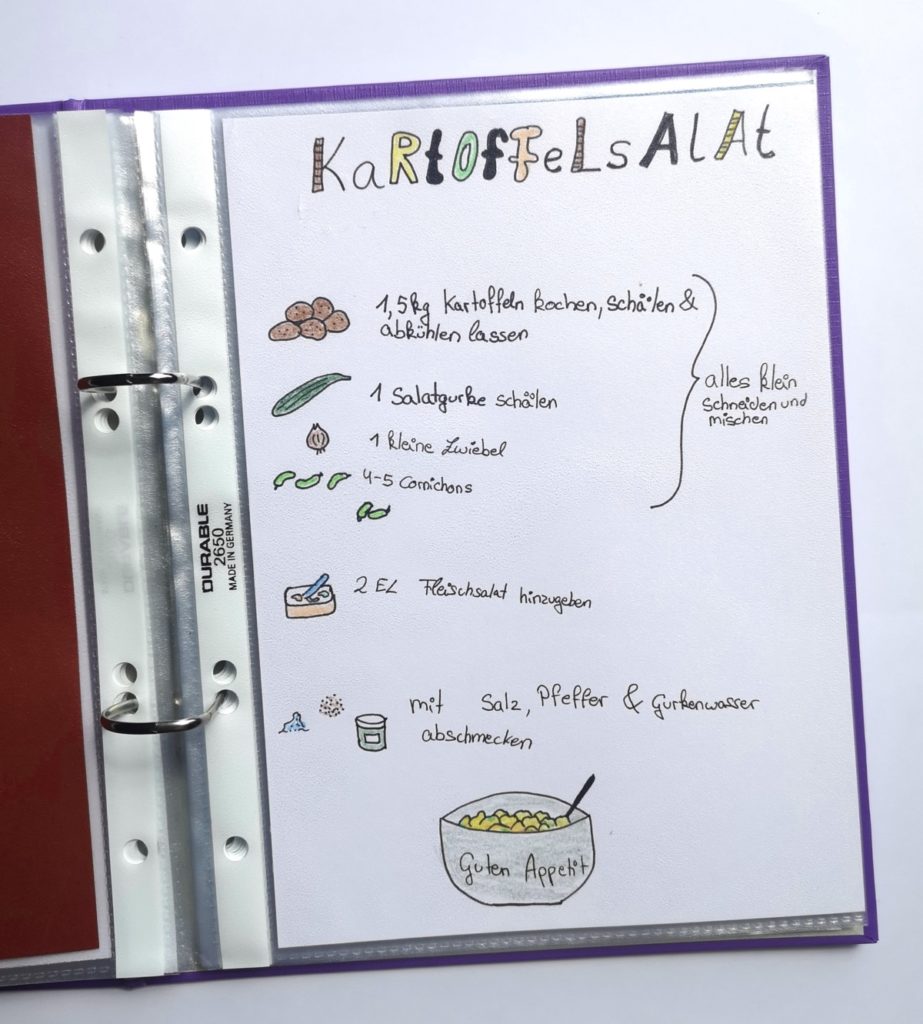 KaRtOffeLsAlAt
1,5kg Kartoffeln kochen, schälen &
abkühlen lassen
1 Salatgurke schälen
1 kleine Zwiebel
4-5 Cornichons
alles klein
schneiden und
mischen
2 EL Fleischsalat hinzugeben
mit Salz, Pfeffer & Gurkenwasser
abschmecken
Guten Appetit
DURABLE
2650
MADE IN GERMANY